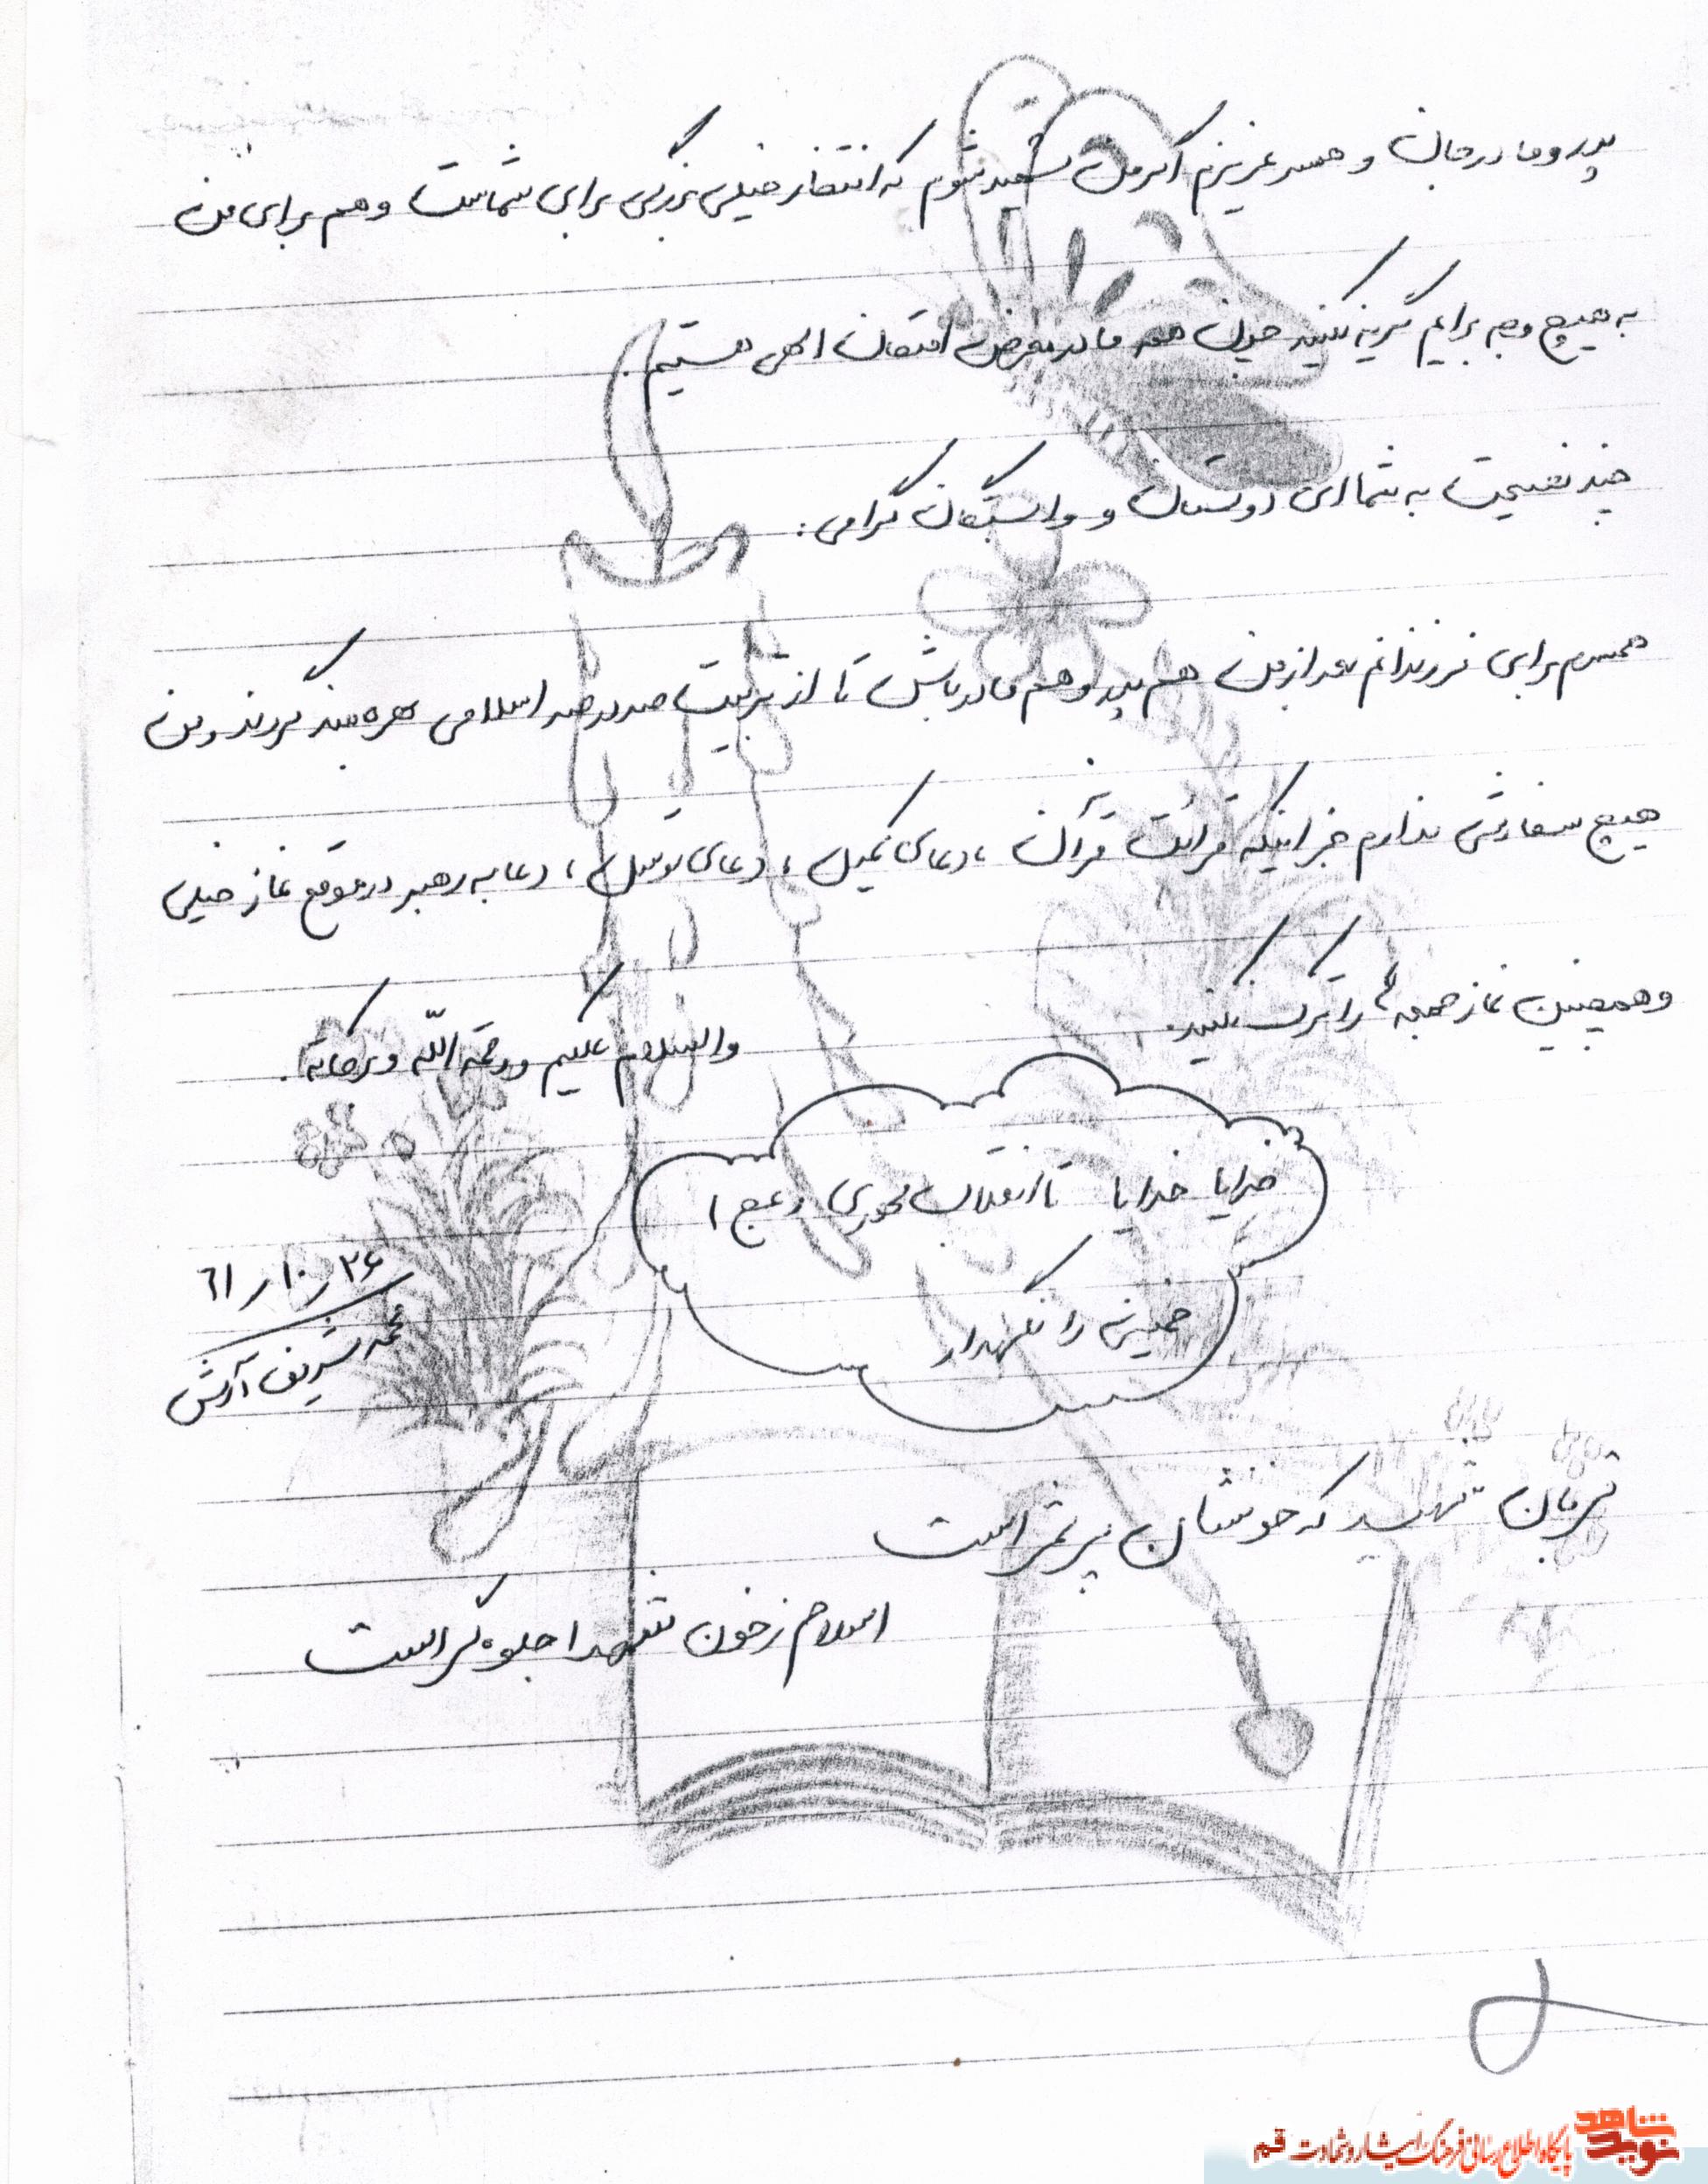 پدر و مادر جان و همسر عزیزم اگر من شهید شوم که انتظار خیلی بزرگی برای شماست و هم برای من
به هیچ وجه برایم گریه نکنید چون همه ما در معرض امتحان الهی هستیم.
چند نصیحت به شما ای دوستان و وابستگان گرامی:
همسرم برای فرزندانم بعد از من هم پدر و هم مادر باش تا از تربیت صددرصد اسلامی بهره‌مند گردند و من
هیچ سفارشی ندارم جز اینکه قرائت قرآن، دعای کمیل، دعای توسل، دعا به رهبر در موقع نماز خیلی
و همچنین نماز جمعه را ترک نکنید.
والسلام علیکم و رحمة الله و برکاته.
خدایا خدایا تا انقلاب مهدی (عج)
خمینی را نگهدار
۶۱/۱۰/۲۶
محمد شریف آرش
قربان شهید که خونشان پر ثمر است
اسلام ز خون شهدا جلوه‌گر است
نوید شاهد
پایگاه اطلاع رسانی فرهنگ ایثار و شهادت قم